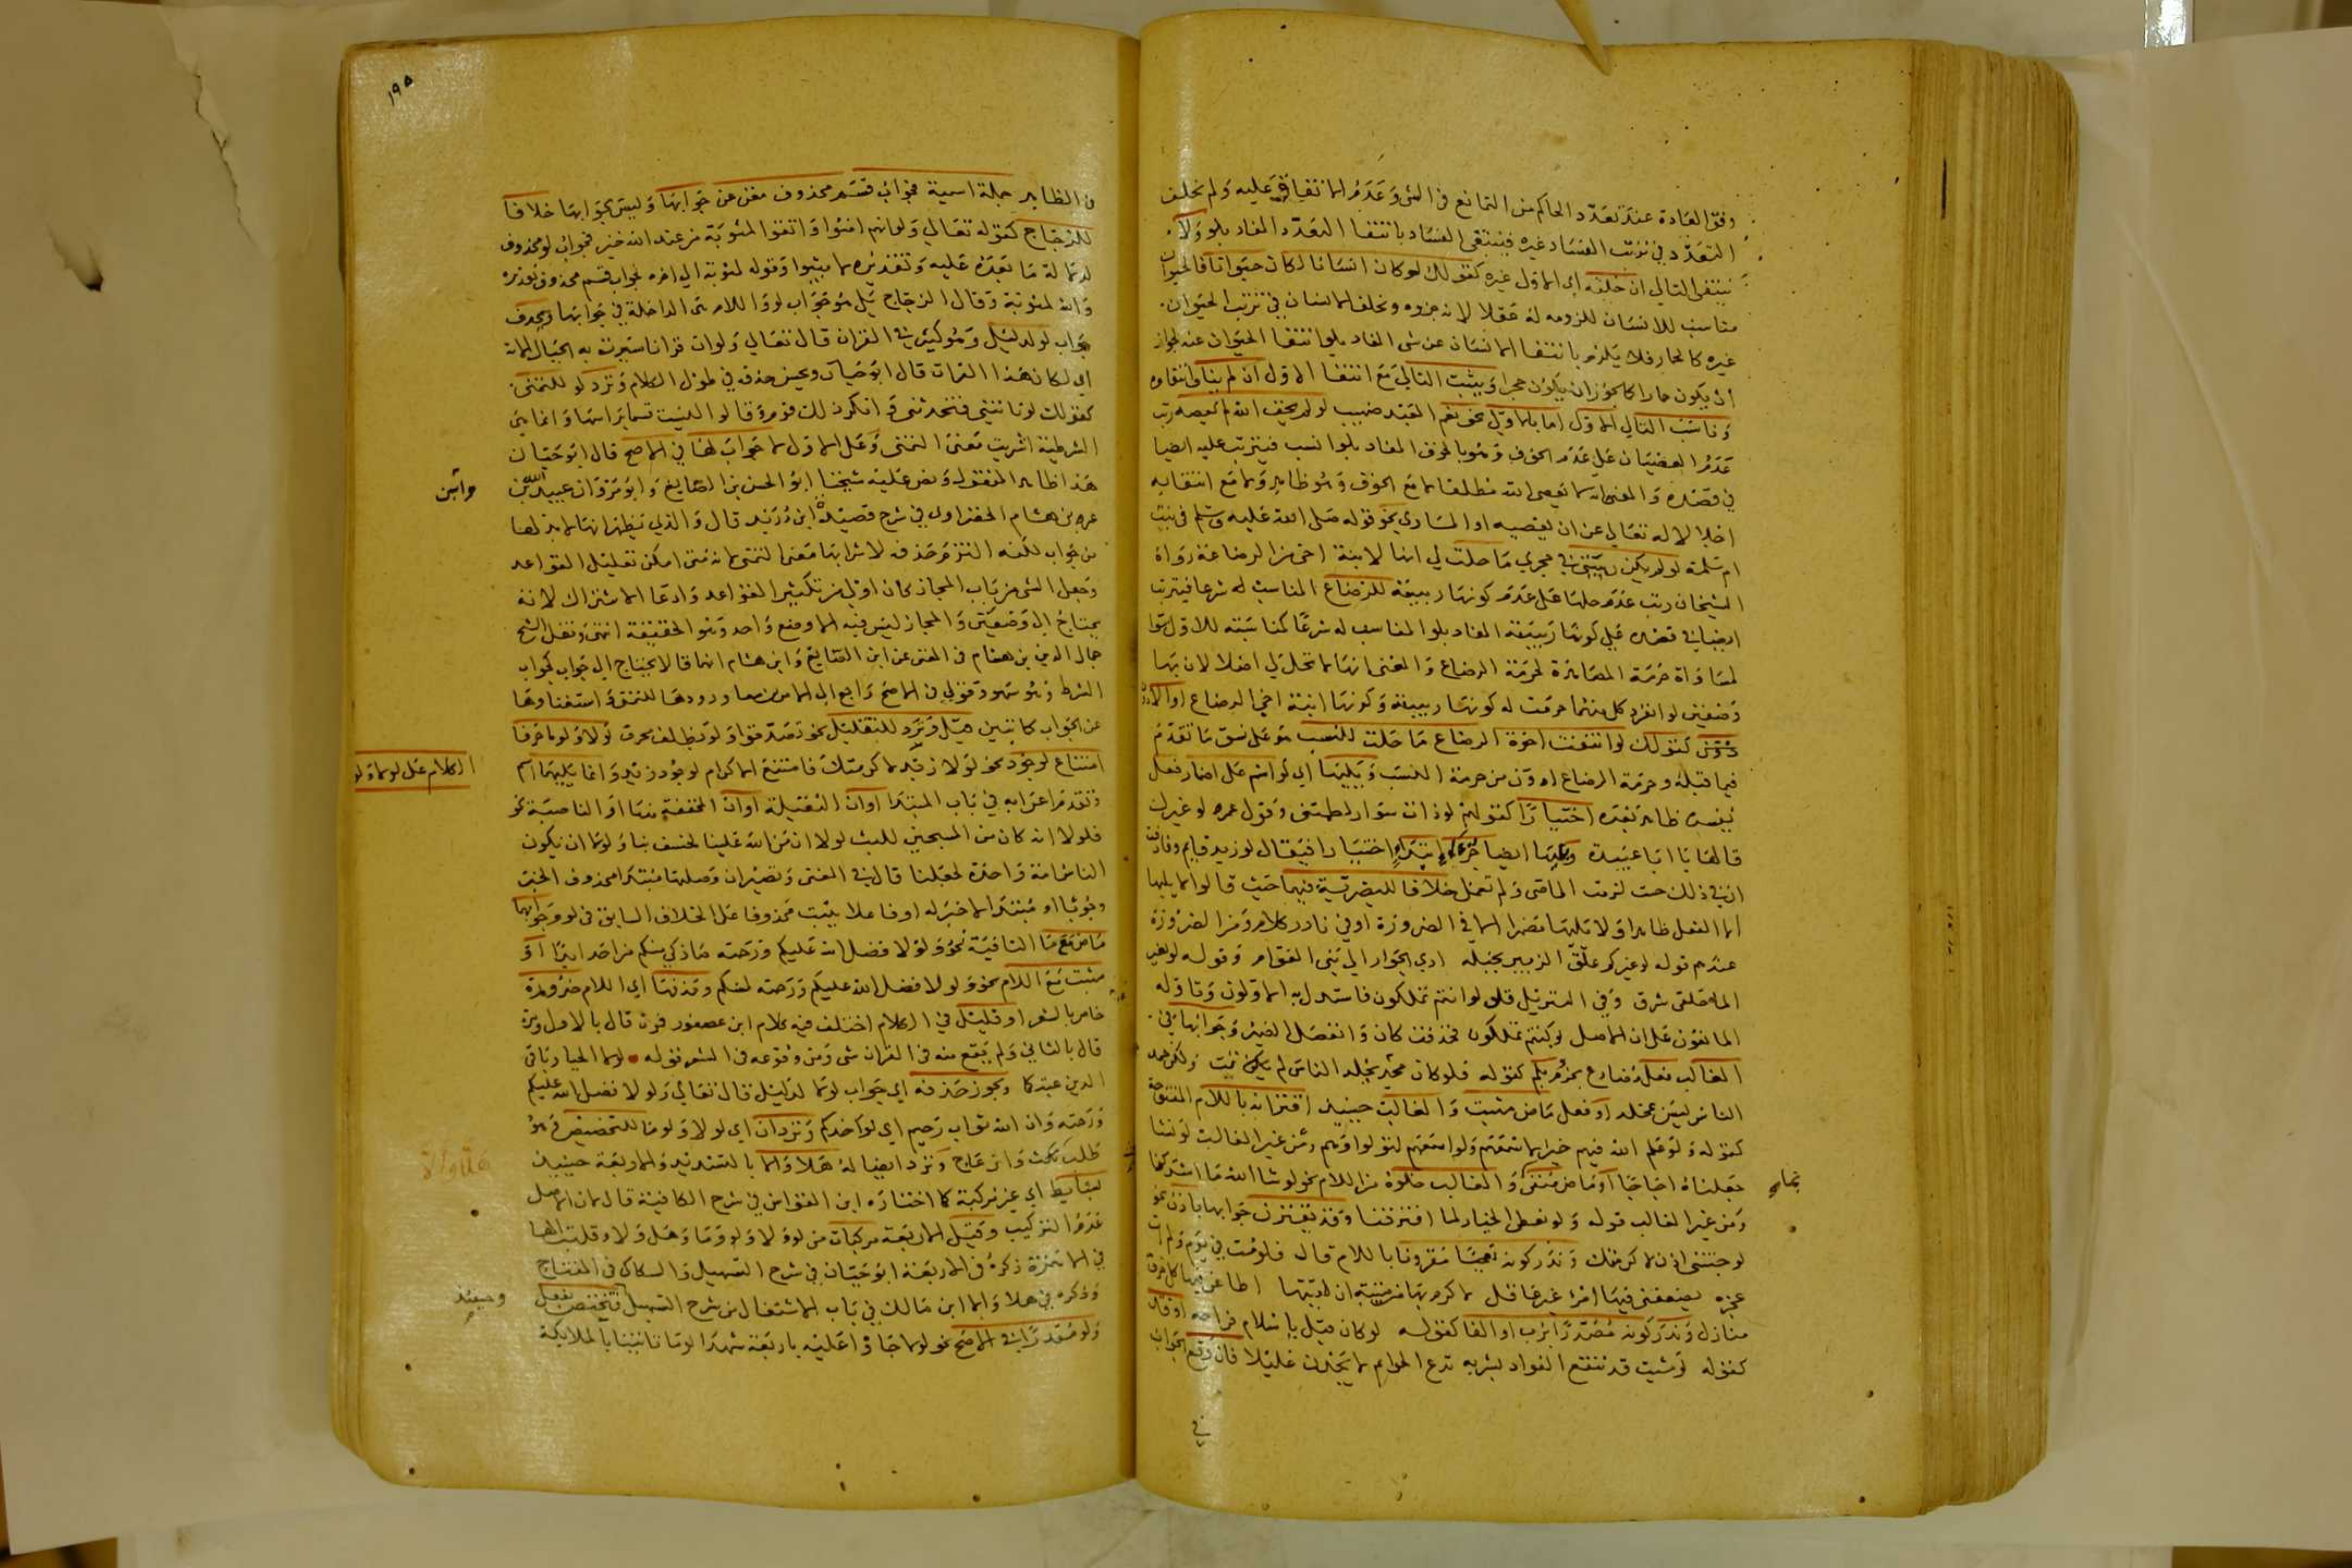 وفق العادة عند تعدد الحاكم من التمانع في الشي وعدم الاتفاق عليه ولم يخلف
التعدد في ترتب الفساد غيره فينتفي الفساد بانتفا التعدد المفاد بلو ولا
ينتفي التالي ان خلفه اي الاول غيره كقولك لو كان انسانا لكان حيوانا فالحيوان
مناسب للانسان للزومه له عقلا لانه جزوه ويخلف الانسان في ترتب الحيوان
غيره كالحمار فلا يلزم بانتفا الانسان عن شي المفاد بلو انتفا الحيوان عنه لجواز
ان يكون حمارا كما يجوز ان يكون حجرا ويثبت التالي مع انتفا الاول ان لم يناف انتفاوه
وناسب التالي الاول اما بالاولى نحو نعم العبد صهيب لو لم يخف الله لم يعصه رتب
عدم العصيان على عدم الخوف وهو بالخوف المفاد بلو انسب فيترتب عليه ايضا
في قصده والمعنى انه لا يعصي الله مطلقا لا مع الخوف وهو ظاهر ولا مع انتفايه
اجلالا له تعالى عن ان يعصيه او المساوي نحو قوله صلى الله عليه وسلم في بنت
ام سلمة لو لم تكن ربيبتي في حجري ما حلت لي انها لابنة اخي من الرضاعة رواه
الشيخان رتب عدم حلها على عدم كونها ربيبة للرضاع المناسب له شرعا فيترتب
ايضا في قصده على كونها ربيبة المفاد بلو المناسب له شرعا كمناسبته للاول سوا
لمساواة حرمة المصاهرة لحرمة الرضاع والمعنى انها لا تحل لي اصلا لان بها
وصفين لو انفرد كل منهما حرمت له كونها ربيبة وكونها ابنة اخي الرضاع او الادون
كقولك لو انتفت اخوة الرضاع ما حلت للنسب هو على نسق ما تقدم
فيما قبله وحرمة الرضاع ادون من حرمة النسب ويليها اي لو اسم على اضمار فعل
يفسره ظاهر بعده اختيارا كقولهم لو ذات سوار لطمتني وقول عمر لو غيرك
قالها يا ابا عبيدة ويليها ايضا جزءا ابتداء اختيارا فيقال لو زيد قايم وفارقت
ان في ذلك حيث لزمت الماضي ولم تعمل خلافا للبصرية فيهما حيث قالوا لا يليها
الا الفعل ظاهرا ولا تليها مضمرا الا في الضرورة او في نادر كلام ومن الضرورة
عندهم قوله لو غيركم علق الزبير بحبله ادى الجوار الى بني العوام وقوله لو بغير
الما حلقي شرق وفي التنزيل قل لو انتم تملكون فاستدل به الاولون وتاوله
المانعون على ان الاصل لو كنتم تملكون فحذفت كان وانفصل الضمير وجوابها في
الغالب فعل مضارع مجزوم بلم كقوله فلو كان مجد يخلد الناس لم يمت ولكن حمد
الناس ليس بمخلد او فعل ماض مثبت والغالب حينيذ اقترانه باللام المفتوحة
كقوله ولو علم الله فيهم خيرا لاسمعهم ولو اسمعهم لتولوا وهم ومن غير الغالب لو نشا
جعلناه اجاجا او ماض منفي والغالب خلوه من اللام نحو لو شا الله ما اشركنا
بما
ومن غير الغالب قوله ولو نعطى الخيار لما افترقنا وقد يقترن جوابها باذن نحو
لو جئتني اذن لاكرمتك وندر كونه تعجبا مقرونا باللام قال فلو مت في يوم ولم ات
عجزه يضعفني فيها امرؤ غير عاقل لاكرم بها من ميتة ان لقيتها اطاعن فيها كل خرق
منازل وندر كونه مصدرا برب او الفا كقوله لو كان قتل يا سلام فراحة او قال
كقوله لو شيت قد نقع الفواد بشربة تدع الحوايم لا يجدن غليلا فان وقع الجواب
في
١٩٥
في الظاهر جملة اسمية فجواب قسم محذوف مغن عن جوابها وليس بجوابها خلافا
للزجاج كقوله تعالى ولو انهم امنوا واتقوا لمثوبة من عند الله خير فجواب لو محذوف
لدلالة ما بعده عليه وتقديره لاثيبوا وقوله لمثوبة الى اخره لجواب قسم محذوف تقديره
والله لمثوبة وقال الزجاج بل هو جواب لو واللام هي الداخلة في جوابها ويحذف
جواب لو لدليل وهو كثير في القران قال تعالى ولو ان قرانا سيرت به الجبال الاية
اي لكان هذا القران قال ابو حيان ويحسن حذفه في طول الكلام وترد لو للتمني
كقولك لو تاتيني فتحدثني وانكر ذلك قوم وقالوا ليست قسما براسها وانما هي
الشرطية اشربت معنى التمني وعلى الاول لا جواب لها في الاصح قال ابو حيان
هذا ظاهر المنقول ونص عليه شيخنا ابو الحسن بن الصايغ وابو مروان عبيد الله بن
عمر بن هشام الحضراوي في شرح قصيدة ابن دريد قال والذي يظهر انها لا بد لها
من جواب لكنه التزم حذفه لاشرابها معنى التمني لانه متى امكن تقليل القواعد
وجعل الشي من باب المجاز كان اولى من تكثير القواعد وادعا الاشتراك لانه
يحتاج الى وضعين والمجاز ليس فيه الا وضع واحد وهو الحقيقة انتهى ونقل الشيخ
جمال الدين بن هشام في المغني عن ابن الصايغ وابن هشام انها قالا يحتاج الى جواب كجواب
الشرط وقولي في الاصح راجع الى الامرين ورودها للتمني واستغناوها
عن الجواب كما تبين قيل وترد للتقليل نحو تصدقوا ولو بظلف محرق لولا ولوما حرفا
الكلام على لولا ولو
امتناع لوجود نحو لولا زيد لاكرمتك فامتنع الاكرام لوجود زيد وانما يليهما اسم
وتقدم اعرابه في باب المبتدا او ان الثقيلة او ان المخففة منها او الناصبة نحو
فلولا انه كان من المسبحين للبث لولا ان من الله علينا لخسف بنا ولولا ان يكون
الناس امة واحدة لجعلنا قال في المغني وتصيران وصلتها مبتدا محذوف الخبر
وجوبا او مبتدا لا خبر له او فاعلا بثبت محذوفا على الخلاف السابق في لو وجوابها
ماض مع ما النافية نحو ولولا فضل الله عليكم ورحمته ما زكى منكم من احد ابدا او
مثبت مع اللام نحو ولولا فضل الله عليكم ورحمته لمسكم وحذفها اي اللام ضرورة
خاص بالشعر او قليل في الكلام اختلف فيه كلام ابن عصفور فمرة قال بالاول ومرة
قال بالثاني ولم يقع منه في القران شي ومن وقوعه في الشعر قوله لولا الحيا وباقي
الدين عبتكما ويجوز حذفه اي جواب لولا لدليل قال تعالى ولولا فضل الله عليكم
ورحمته وان الله تواب رحيم اي لواخذكم وتردان اي لولا ولوما للتحضيض وهو
طلب بحث وازعاج وترد ايضا له هلا والا بالتشديد والاربعة حينيذ
بسايط اي غير مركبة كما اختاره ابن القواس في شرح الكافية قال لان الاصل
عدم التركيب وقيل الاربعة مركبات من لو ولا ولو وما وهل ولا وقلبت الها
في الا همزة ذكره في الاربعة ابو حيان في شرح التسهيل والسكاكي في المفتاح
وذكره في هلا والا ابن مالك في باب الاشتغال من شرح التسهيل فتختص بفعل
وحينيذ
ولو مقدرا في الاصح نحو لولا جاؤا عليه باربعة شهدا لوما تاتينا بالملايكة